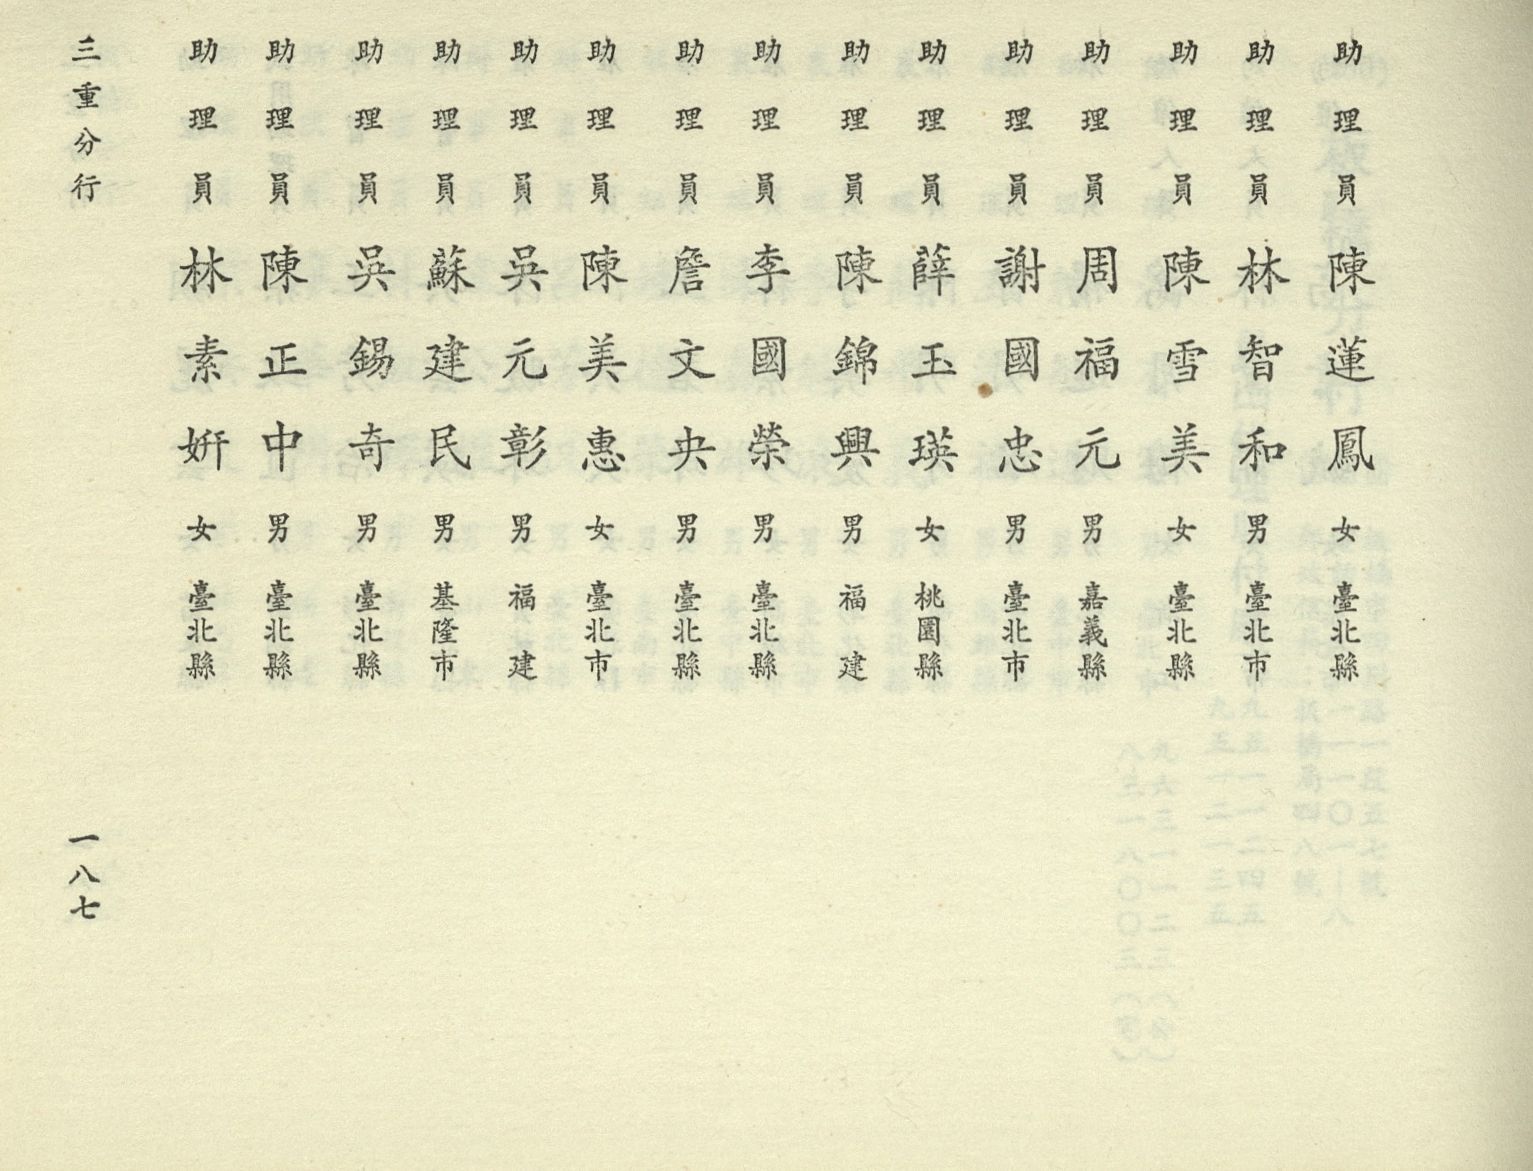 助理員陳蓮鳳女臺北縣
助理員林智和男臺北市
助理員陳雪美女臺北縣
助理員周福元男嘉義縣
助理員謝國忠男臺北市
助理員薛玉瑛女桃園縣
助理員陳錦興男福建
助理員李國榮男臺北縣
助理員詹文央男臺北縣
助理員陳美惠女臺北市
助理員吳元彰男福建
助理員蘇建民男基隆市
助理員吳錫奇男臺北縣
助理員陳正中男臺北縣
助理員林素姸女臺北縣
三重分行
一八七